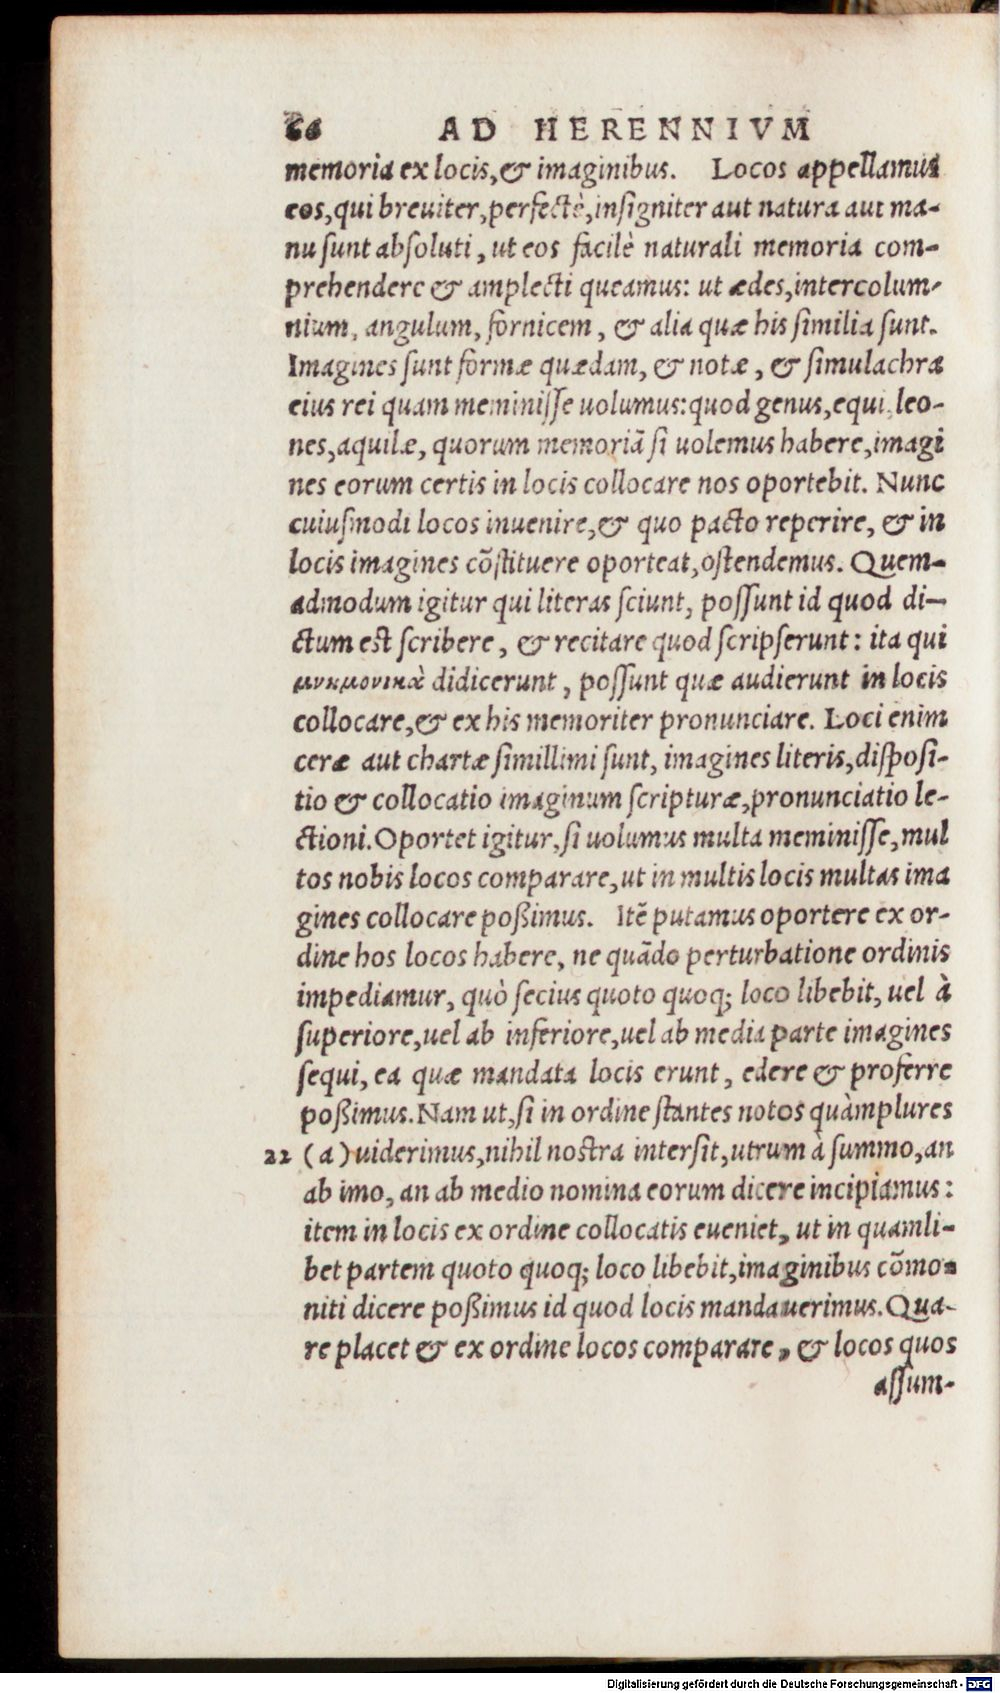 66 AD HERENNIVM
memoria ex locis, & imaginibus. Locos appellamus
eos, qui breuiter, perfectè, insigniter aut natura aut ma-
nu sunt absoluti, ut eos facilè naturali memoria com-
prehendere & amplecti queamus: ut ædes, intercolum-
nium, angulum, fornicem, & alia quæ his similia sunt.
Imagines sunt formæ quædam, & notæ, & simulachra
eius rei quam meminisse uolumus: quod genus, equi, leo-
nes, aquilæ, quorum memoriã si uolemus habere, imagi
nes eorum certis in locis collocare nos oportebit. Nunc
cuiusmodi locos inuenire, & quo pacto reperire, & in
locis imagines cõstituere oporteat, ostendemus. Quem-
admodum igitur qui literas sciunt, possunt id quod di-
ctum est scribere, & recitare quod scripserunt: ita qui
μνημονικὰ didicerunt, possunt quæ audierunt in locis
collocare, & ex his memoriter pronunciare. Loci enim
ceræ aut chartæ simillimi sunt, imagines literis, disposi-
tio & collocatio imaginum scripturæ, pronunciatio le-
ctioni. Oportet igitur, si uolumus multa meminisse, mul
tos nobis locos comparare, ut in multis locis multas ima
gines collocare poßimus. Itẽ putamus oportere ex or-
dine hos locos habere, ne quãdo perturbatione ordinis
impediamur, quò secius quoto quoq; loco libebit, uel à
superiore, uel ab inferiore, uel ab media parte imagines
sequi, ea quæ mandata locis erunt, edere & proferre
poßimus. Nam ut, si in ordine stantes notos quàmplures
22 (a) uiderimus, nihil nostra intersit, utrum à summo, an
ab imo, an ab medio nomina eorum dicere incipiamus:
item in locis ex ordine collocatis eueniet, ut in quamli-
bet partem quoto quoq; loco libebit, imaginibus cõmo-
niti dicere poßimus id quod locis mandauerimus. Qua-
re placet & ex ordine locos comparare, & locos quos
assum-
Digitalisierung gefördert durch die Deutsche Forschungsgemeinschaft - DFG